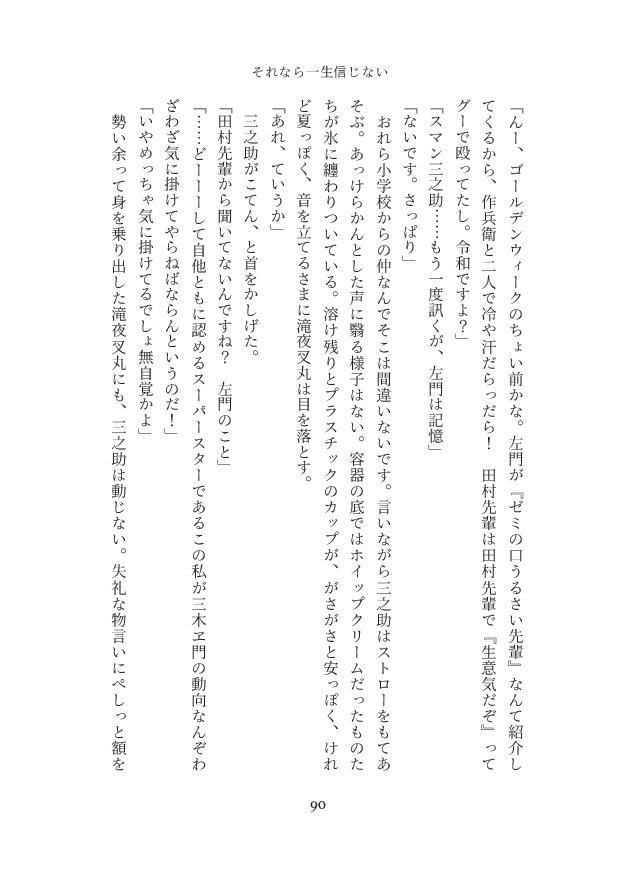 それなら一生信じない
「んー、ゴールデンウィークのちょい前かな。左門が『ゼミの口うるさい先輩』なんて紹介し
てくるから、作兵衛と二人で冷や汗だらっだら！　田村先輩は田村先輩で『生意気だぞ』って
グーで殴ってたし。令和ですよ？」
「スマン三之助……もう一度訊くが、左門は記憶」
「ないです。さっぱり」
　おれら小学校からの仲なんでそこは間違いないです。言いながら三之助はストローをもてあ
そぶ。あっけらかんとした声に翳る様子はない。容器の底ではホイップクリームだったものた
ちが氷に纏わりついている。溶け残りとプラスチックのカップが、がさがさと安っぽく、けれ
ど夏っぽく、音を立てるさまに滝夜叉丸は目を落とす。
「あれ、ていうか」
　三之助がこてん、と首をかしげた。
「田村先輩から聞いてないんですね？　左門のこと」
「……どーーーして自他ともに認めるスーパースターであるこの私が三木ヱ門の動向なんぞわ
ざわざ気に掛けてやらねばならんというのだ！」
「いやめっちゃ気に掛けてるでしょ無自覚かよ」
　勢い余って身を乗り出した滝夜叉丸にも、三之助は動じない。失礼な物言いにぺしっと額を
90